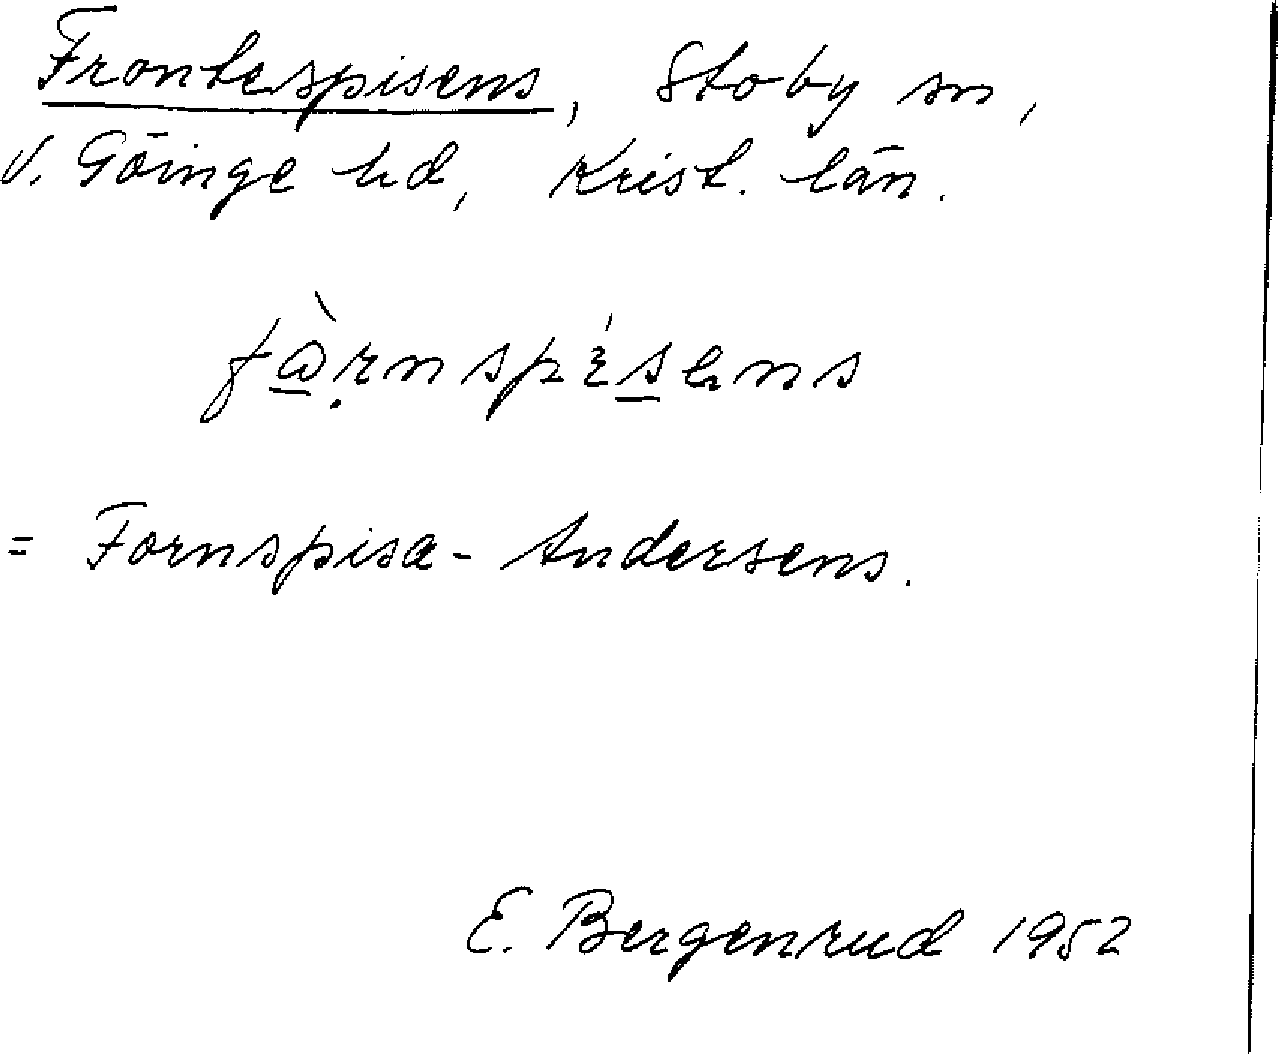 Frontespisens, Stoby sn,
V. Göinge hd, Krist. län.
= Fornspisa-Andersens.
E. Bergenrud 1952